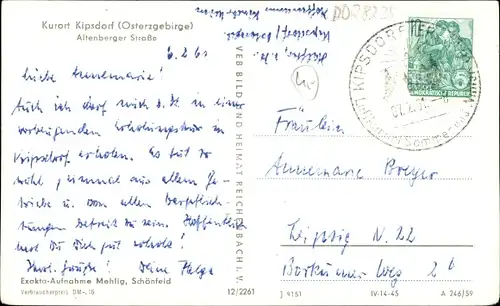 Kurort Kipsdorf (Osterzgebirge)
Altenberger Straße
6.2.60
Liebe Annemarie!
Auch ich darf mich z. Zt. in einer
vorbeugenden Erholungskur in
Kipsdorf erholen. Es tut so
wohl, einmal aus allem Ge-
und von allen Verpflich-
tungen befreit zu sein. Hoffentlich
hast Du Dich gut erholt!
Herzl. Grüße! Deine Helga
Exakta-Aufnahme Mehlig, Schönfeld
Verbraucherpreis DM -,18
12/2261
VEB BILD UND HEIMAT REICHENBACH I. V.
DEUTSCHE
DEMOKRATISCHE REPUBLIK
5
KURORT KIPSDORF
Fräulein
Annemarie Breyer
Leipzig N. 22
Borkumer Weg 26
J 9151
IV-14-45
A 246/59